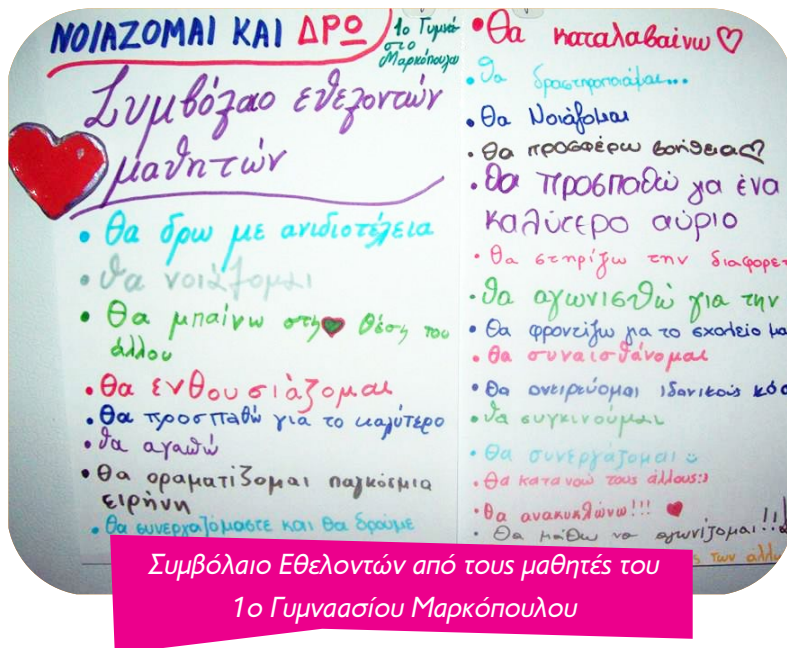 ΝΟΙΑΖΟΜΑΙ ΚΑΙ ΔΡΩ
1ο Γυμνά-
σιο
Μαρκόπουλου
Συμβόλαιο εθελοντών
μαθητών
• Θα δρω με ανιδιοτέλεια
• Θα νοιάζομαι
• Θα μπαίνω στη θέση του
άλλου
• Θα ενθουσιάζομαι
• Θα προσπαθώ για το καλύτερο
• Θα αγαπώ
• Θα οραματίζομαι παγκόσμια
ειρήνη
• Θα συνεργαζόμαστε και θα δρούμε
• Θα καταλαβαίνω ♡
• Θα δραστηριοποιούμαι...
• Θα Νοιάζομαι
• Θα προσφέρω βοήθεια ♡
• Θα προσπαθώ για ένα
καλύτερο αύριο
• Θα στηρίζω την
• Θα αγωνισθώ για την
• Θα φροντίζω για το σχολείο
• Θα συναισθάνομαι
• Θα ονειρεύομαι ιδανικούς
• Θα συγκινούμαι
• Θα συνεργάζομαι
• Θα κατανοώ τους άλλους:)
• Θα ανακυκλώνω!!! ♥
• Θα μάθω να αγωνίζομαι!!
των
Συμβόλαιο Εθελοντών από τους μαθητές του
1ο Γυμναασίου Μαρκόπουλου